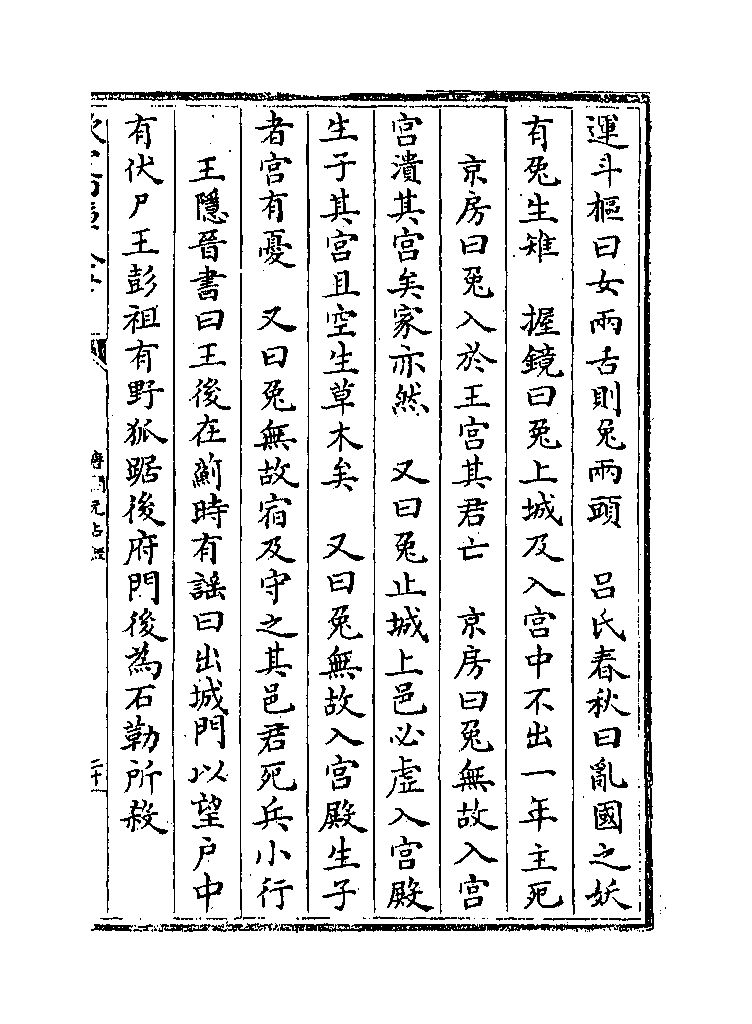 運斗樞曰女兩舌則兔兩頭　吕氏春秋曰亂國之妖
有兔生雉　握鏡曰兔上城及入宫中不出一年主死
京房曰兔入於王宫其君亡　京房曰兔無故入宫
宫潰其宫矣家亦然　又曰兔止城上邑必虚入宫殿
生子其宫且空生草木矣　又曰兔無故入宫殿生子
者宫有憂　又曰兔無故宿及守之其邑君死兵小行
王隱晉書曰王後在薊時有謡曰出城門以望户中
有伏尸王彭祖有野狐踞後府門後為石勒所殺
元占經
二十一